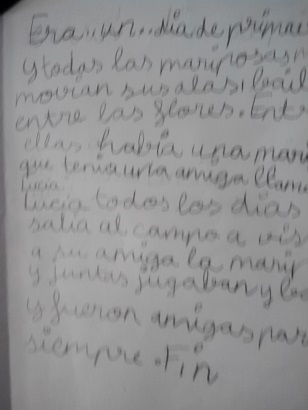 Era..un..dia de primav
y todas las mariposas
movian sus alas, bail
entre las flores. Ent
ellas había una mari
que tenia una amiga llam
lucia.
Lucia todos los dias
salia al campo a vis
a su amiga la marip
y juntas jugaban y
y fueron amigas par
siempre. Fin